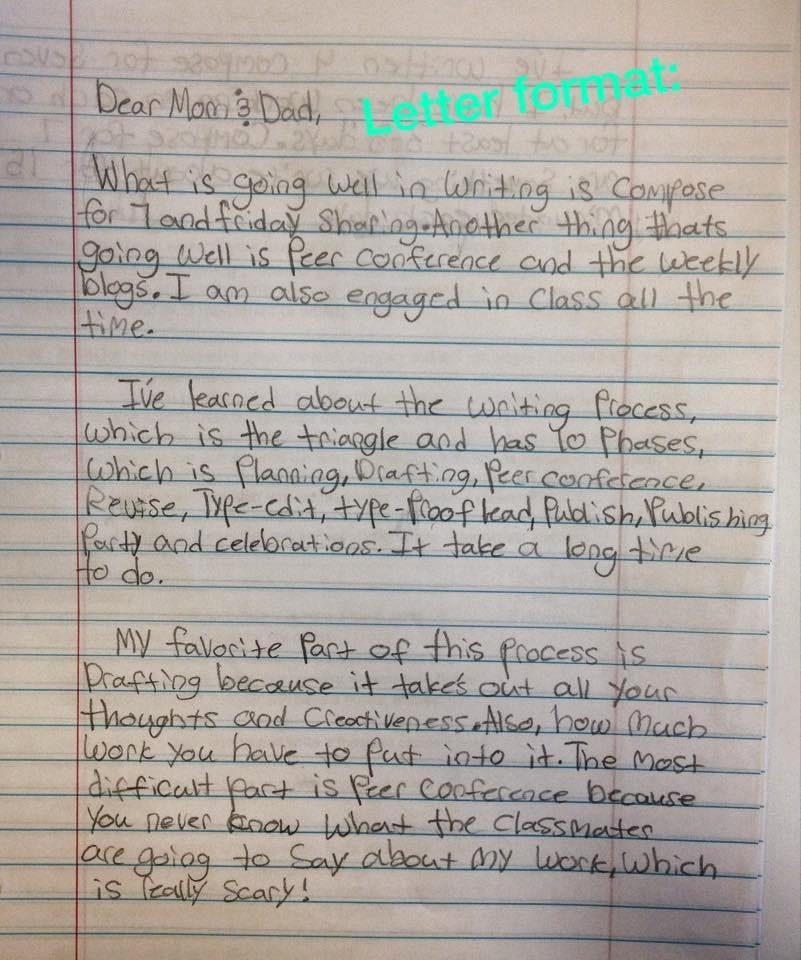 Dear Mom & Dad,
Letter format:
What is going well in writing is Compose
for 7 and friday Sharing. Another thing thats
going well is Peer conference and the weekly
blogs. I am also engaged in Class all the
time.
I've learned about the writing Process,
which is the triangle and has 10 Phases,
which is Planning, Drafting, Peer conference,
Revise, Type-edit, type-Proof read, Publish, Publishing
Party and celebrations. It take a long time
to do.
My favorite Part of this process is
Drafting because it takes out all your
thoughts and Creativeness. Also, how much
work you have to put into it. The most
difficult part is Peer conference because
you never know what the classmates
are going to say about my work, which
is really scary!